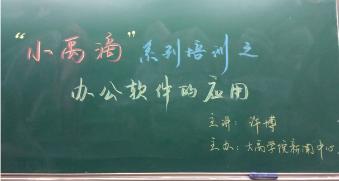 “小禹滴”系列培训之
办公软件的应用
主讲：许博
主办：大禹学院新闻中心